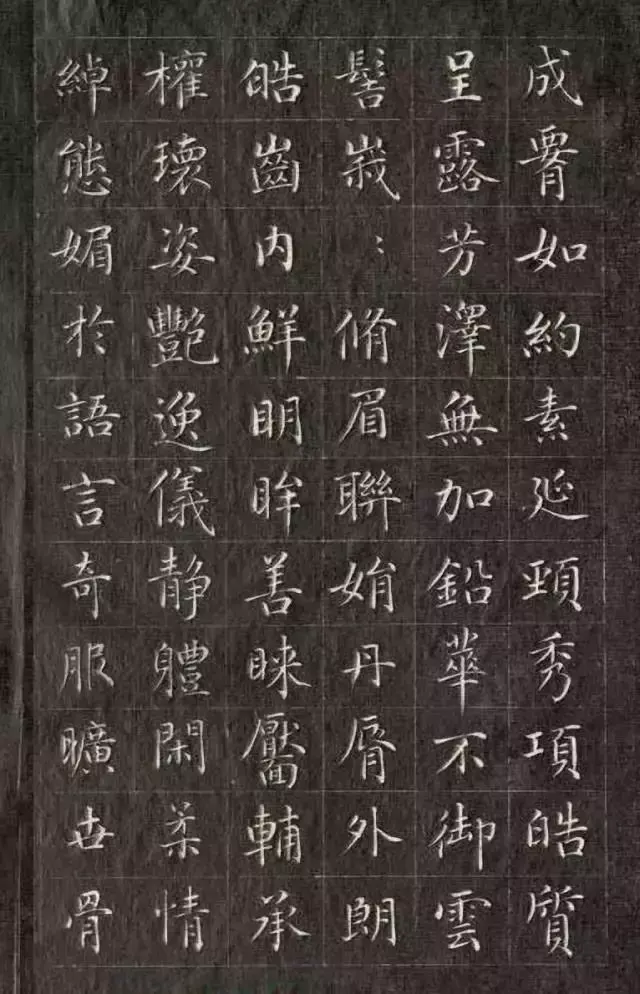 成腰如約素延頸秀項皓質
呈露芳澤無加鉛華不御雲
髻峩〻脩眉聯娟丹脣外朗
皓齒内鮮明眸善睞靨輔承
權瓌姿艷逸儀靜軆閑柔情
綽態媚於語言奇服曠世骨